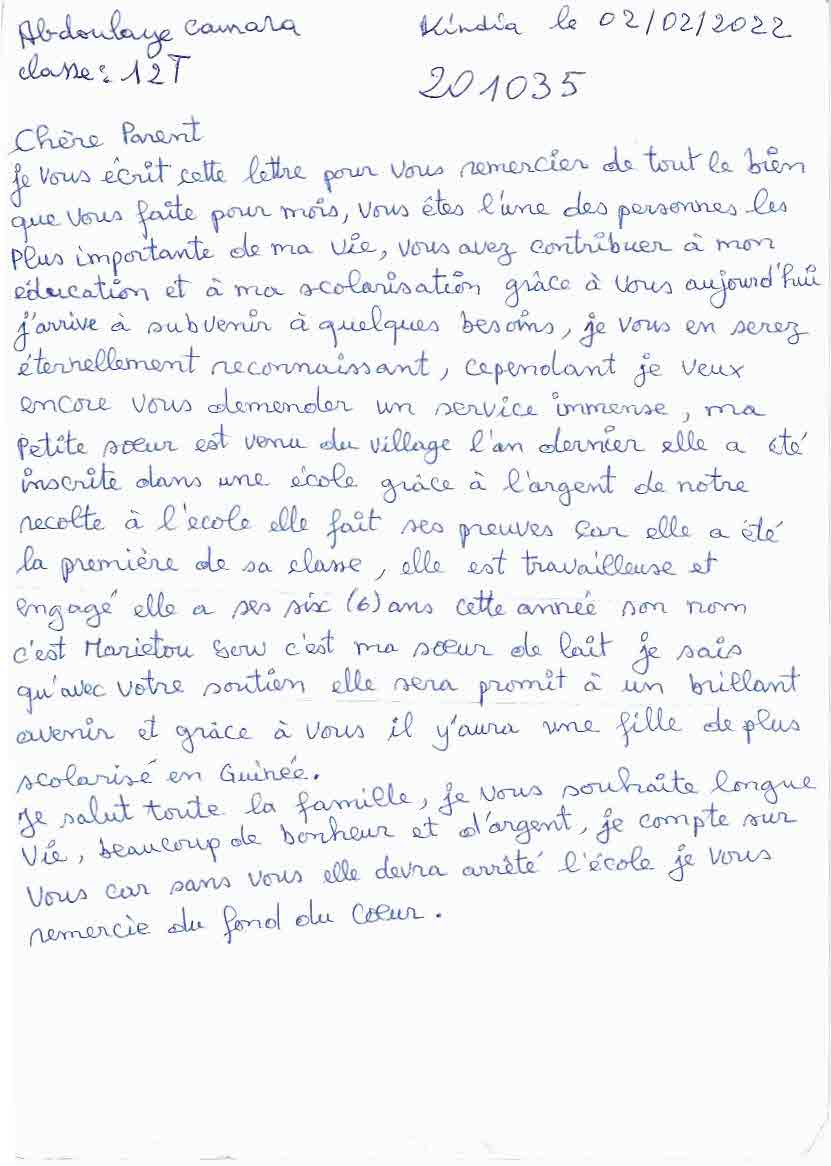 Abdoulaye camara
Kindia le 02/02/2022
classe: 12T
201035
Chère Parent
je vous écrit cette lettre pour vous remercier de tout le bien
que vous faite pour mois, vous êtes l'une des personnes les
plus importante de ma vie, vous avez contribuer à mon
éducation et à ma scolarisation grâce à vous aujourd'hui
j'arrive à subvenir à quelques besoins, je vous en serez
éternellement reconnaissant, cependant je veux
encore vous demender un service immense, ma
petite soeur est venu du village l'an dernier elle a été
inscrite dans une école grâce à l'argent de notre
recolte à l'école elle fait ses preuves car elle a été
la première de sa classe, elle est travailleuse et
engagé elle a ses six (6) ans cette année son nom
c'est Marietou Sow c'est ma soeur de lait je sais
qu'avec votre soutien elle sera promit à un brillant
avenir et grâce à vous il y'aura une fille de plus
scolarisé en Guinée.
Je salut toute la famille, je vous souhaite longue
vie, beaucoup de bonheur et d'argent, je compte sur
vous car sans vous elle devra arrêté l'école je vous
remercie du fond du coeur.